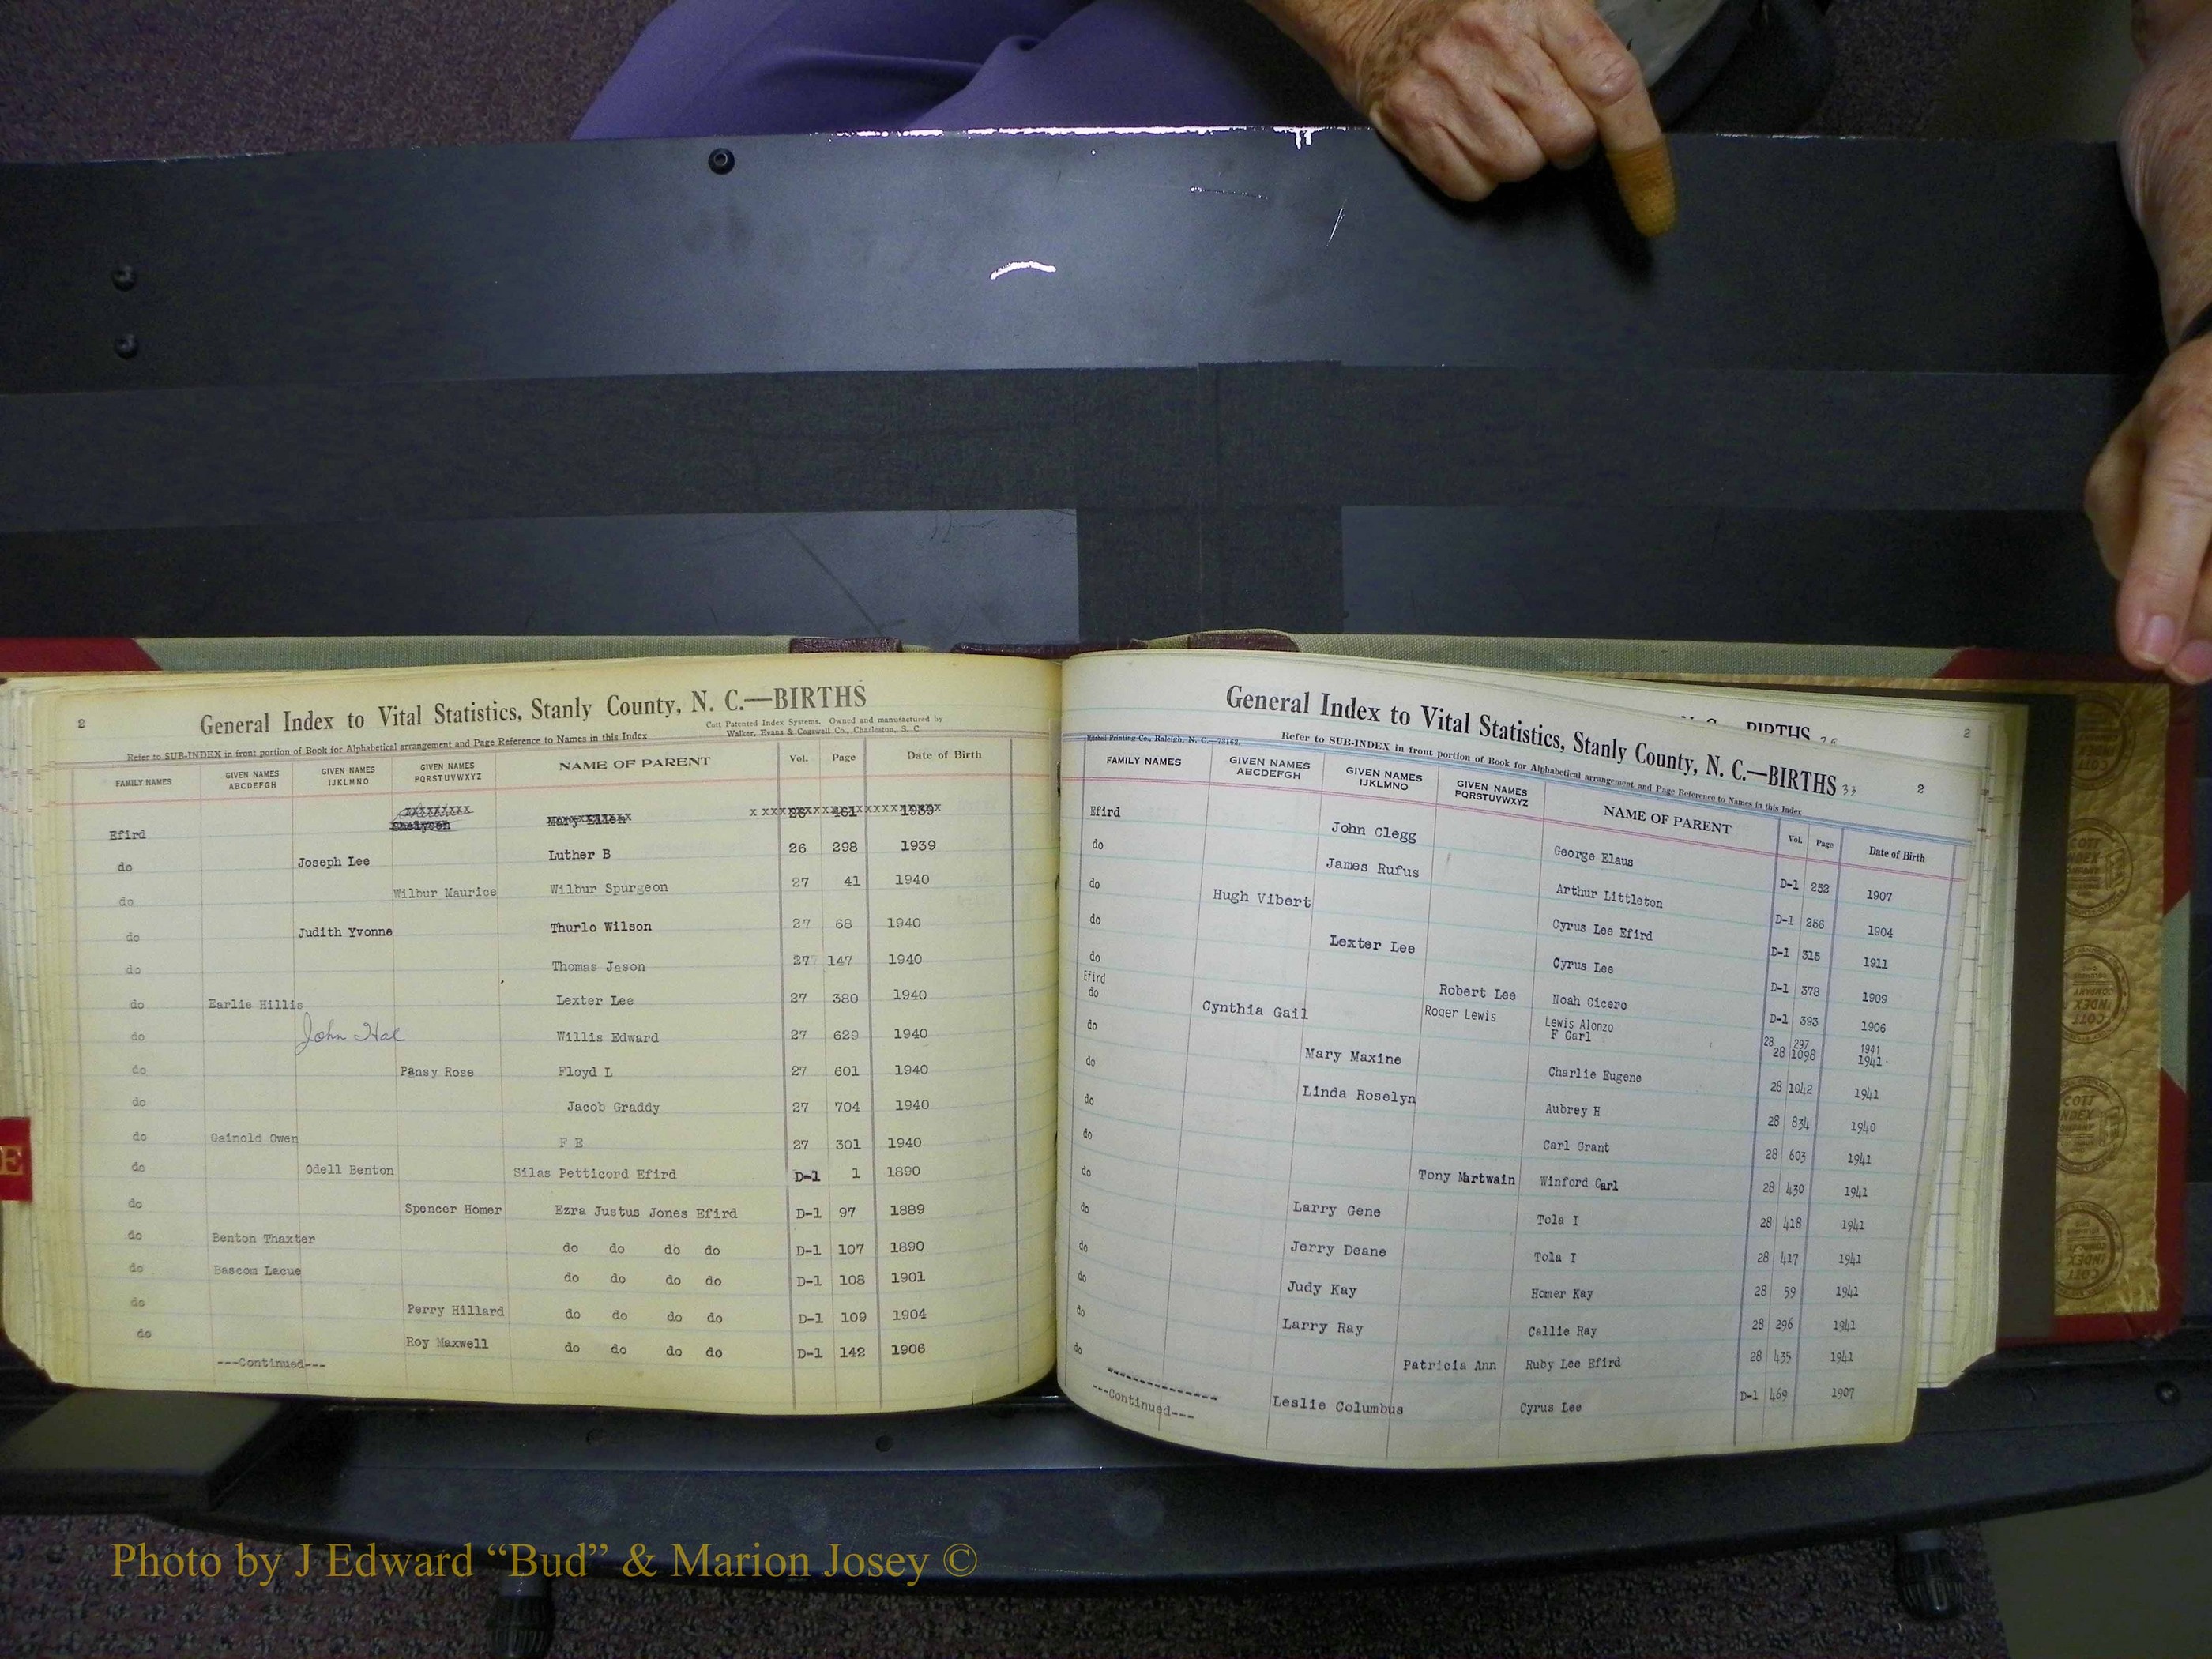 2
General Index to Vital Statistics, Stanly County, N. C.—BIRTHS
Cott Patented Index Systems. Owned and manufactured by
Walker, Evans & Cogswell Co., Charleston, S. C.
Refer to SUB-INDEX in front portion of Book for Alphabetical arrangement and Page Reference to Names in this Index
FAMILY NAMES GIVEN NAMES ABCDEFGH GIVEN NAMES IJKLMNO GIVEN NAMES PQRSTUVWXYZ NAME OF PARENT Vol. Page Date of Birth
Efird Mary Ellen 26 461 1939
do Joseph Lee Luther B 26 298 1939
do Wilbur Maurice Wilbur Spurgeon 27 41 1940
do Judith Yvonne Thurlo Wilson 27 68 1940
do Thomas Jason 27 147 1940
do Earlie Hillis Lexter Lee 27 380 1940
do John Hal Willis Edward 27 629 1940
do Pansy Rose Floyd L 27 601 1940
do Jacob Graddy 27 704 1940
do Gainold Owen F E 27 301 1940
do Odell Benton Silas Petticord Efird D-1 1 1890
do Spencer Homer Ezra Justus Jones Efird D-1 97 1889
do Benton Thaxter do do do do D-1 107 1890
do Bascom Lacue do do do do D-1 108 1901
do Perry Hillard do do do do D-1 109 1904
do Roy Maxwell do do do do D-1 142 1906
---Continued---
E
BIRTHS
2
General Index to Vital Statistics, Stanly County, N. C.—BIRTHS 33
2
Mitchell Printing Co., Raleigh, N. C.—73162.
Refer to SUB-INDEX in front portion of Book for Alphabetical arrangement and Page Reference to Names in this Index
FAMILY NAMES GIVEN NAMES ABCDEFGH GIVEN NAMES IJKLMNO GIVEN NAMES PQRSTUVWXYZ NAME OF PARENT Vol. Page Date of Birth
Efird John Clegg George Elaus D-1 252 1907
do James Rufus Arthur Littleton D-1 256 1904
do Hugh Vibert Cyrus Lee Efird D-1 315 1911
do Lexter Lee Cyrus Lee D-1 378 1909
do Robert Lee Noah Cicero D-1 393 1906
Efird Roger Lewis Lewis Alonzo 28 297 1941
do Cynthia Gail F Carl 28 1098 1941
do Mary Maxine Charlie Eugene 28 1042 1941
do Linda Roselyn Aubrey H 28 834 1940
do Carl Grant 28 603 1941
do Tony Martwain Winford Carl 28 430 1941
do Larry Gene Tola I 28 418 1941
do Jerry Deane Tola I 28 417 1941
do Judy Kay Homer Kay 28 59 1941
do Larry Ray Callie Ray 28 296 1941
do Patricia Ann Ruby Lee Efird 28 435 1941
do Leslie Columbus Cyrus Lee D-1 469 1907
---Continued---
COTT
INDEX
COMPANY
Photo by J Edward “Bud” & Marion Josey ©